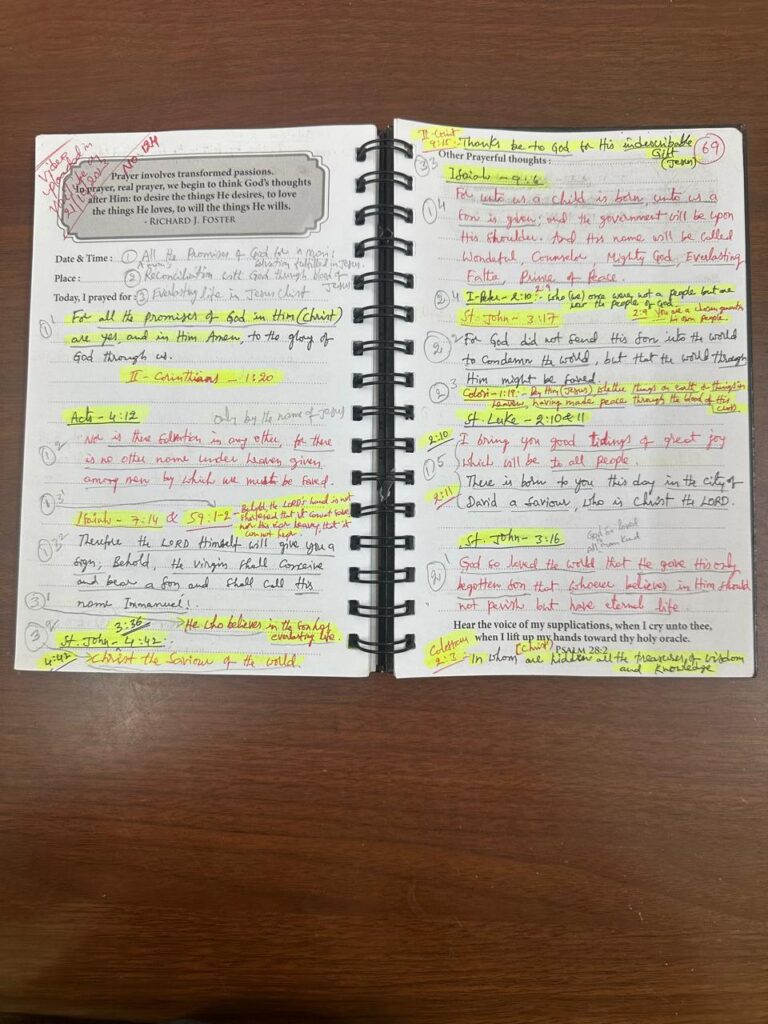 Video
uploaded in
No: 124
Prayer involves transformed passions.
In prayer, real prayer, we begin to think God's thoughts
after Him: to desire the things He desires, to love
the things He loves, to will the things He wills.
- RICHARD J. FOSTER
Date & Time : ① All the Promises of God for
salvation fulfilled in Jesus.
Place : ② Reconciliation with God through blood of
Jesus
Today, I prayed for : ③ Everlasting life in Jesus Christ
① 1 For all the promises of God in Him (Christ)
are yes, and in Him Amen, to the glory of
God through us.
II - Corinthians - 1:20
Acts - 4:12 only by the name of Jesus
① 2 Nor is there salvation in any other, for there
is no other name under heaven given
among men by which we must be saved.
① 3
Isaiah - 7:14 & 59:1-2 - Behold the LORD's hand is not
shortened that it cannot save
nor His ear heavy, that it
cannot hear.
① 3 Therefore the LORD Himself will give you a
Sign; Behold, the virgin shall conceive
and bear a Son and shall call His
③ 1 name Immanuel!
3:36 He who believes in the Son has
everlasting life.
③ 2 St. John - 4:42 :-
4:42 Christ the Saviour of the world.
II Corint
9:15 :- Thanks be to God for His indescribable
Gift
(Jesus)
69
③ 3 Other Prayerful thoughts :
Isaiah - 9:6
① 4 For unto us a child is born, unto us a
Son is given; and the government will be upon
His Shoulder. And His name will be called
Wonderful, Counselor, Mighty God, Everlasting
Father, Prince of Peace.
② 4 I-Peter - 2:10 :- who (we) once were not a people but are
now the people of God.
2:9 You are a chosen generation
St. John - 3:17
② 2 For God did not send His Son into the world
to condemn the world, but that the world through
Him might be saved.
② 3 Colosi - 1:19 :- By Him (Jesus) whether things on earth or things in
heaven, having made peace through the blood of His
(Cross)
St. Luke - 2:10 & 11
2:10 I bring you good tidings of great joy
① 5 which will be to all people.
2:11 There is born to you this day in the city of
David a Saviour, who is Christ the LORD.
God so loved
all man kind
St. John - 3:16
② 1 God so loved the world that He gave His only
begotten Son that whoever believes in Him should
not perish but have eternal life.
Hear the voice of my supplications, when I cry unto thee,
when I lift up my hands toward thy holy oracle.
PSALM 28:2
Colossians
2:3 :- In whom (Christ) are hidden all the treasures of wisdom
and knowledge